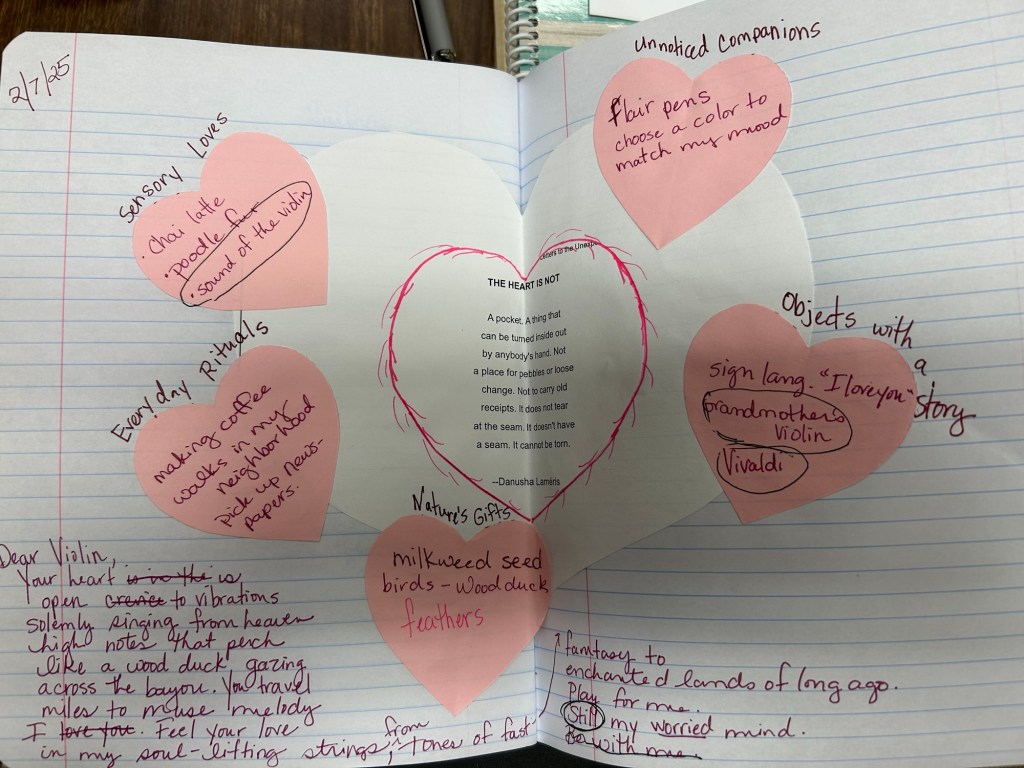 2/7/25
Sensory Loves
• chai latte
• poodle fur
• sound of the violin
Everyday Rituals
making coffee
walks in my
neighborhood
pick up news-
papers.
Unnoticed Companions
Flair pens
choose a color to
match my mood
Letters to the Unexpe
THE HEART IS NOT
A pocket. A thing that
can be turned inside out
by anybody's hand. Not
a place for pebbles or loose
change. Not to carry old
receipts. It does not tear
at the seam. It doesn't have
a seam. It cannot be torn.
--Danusha Laméris
Objects with a story
sign lang. "I love you"
grandmother's
violin
Vivaldi
Nature's Gifts
milkweed seed
birds - wood duck
feathers
Dear Violin,
Your heart is in the is
open crevice to vibrations
solemly singing from heaven
high notes that perch
like a wood duck gazing
across the bayou. You travel
miles to muse melody
I love you. Feel your love
in my soul-lifting strings, from tones of fast
fantasy to
enchanted lands of long ago.
Play for me.
Still my worried mind.
Be with me.